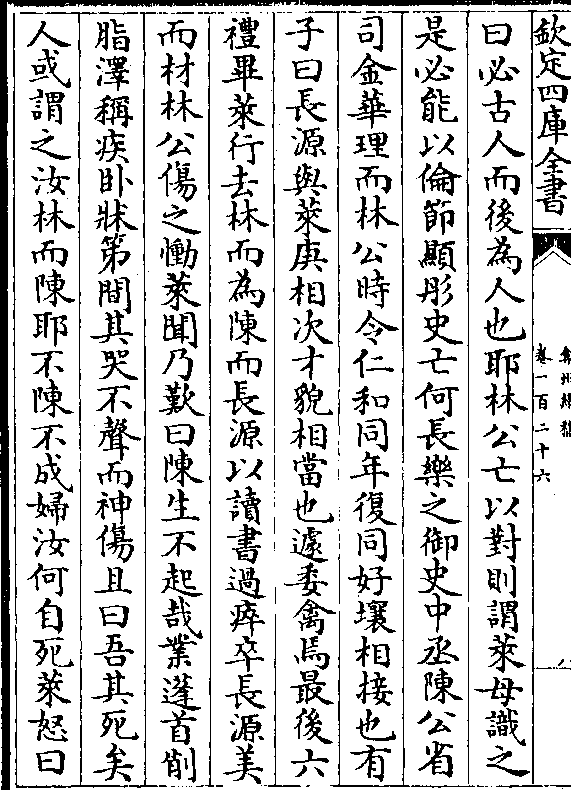 欽定四庫全書
弇州續稿
卷一百二十六
八
曰必古人而後為人也耶林公亡以對則謂萊母識之
是必能以倫節顯彤史亡何長樂之御史中丞陳公省
司金華理而林公時令仁和同年復同好壤相接也有
子曰長源與萊庚相次才貌相當也遽委禽焉最後六
禮畢萊行去林而為陳而長源以讀書過瘁卒長源美
而材林公傷之慟萊聞乃歎曰陳生不起哉業蓬首削
脂澤稱疾卧牀第間其哭不聲而神傷且曰吾其死矣
人或謂之汝林而陳耶不陳不成婦汝何自死萊怒曰